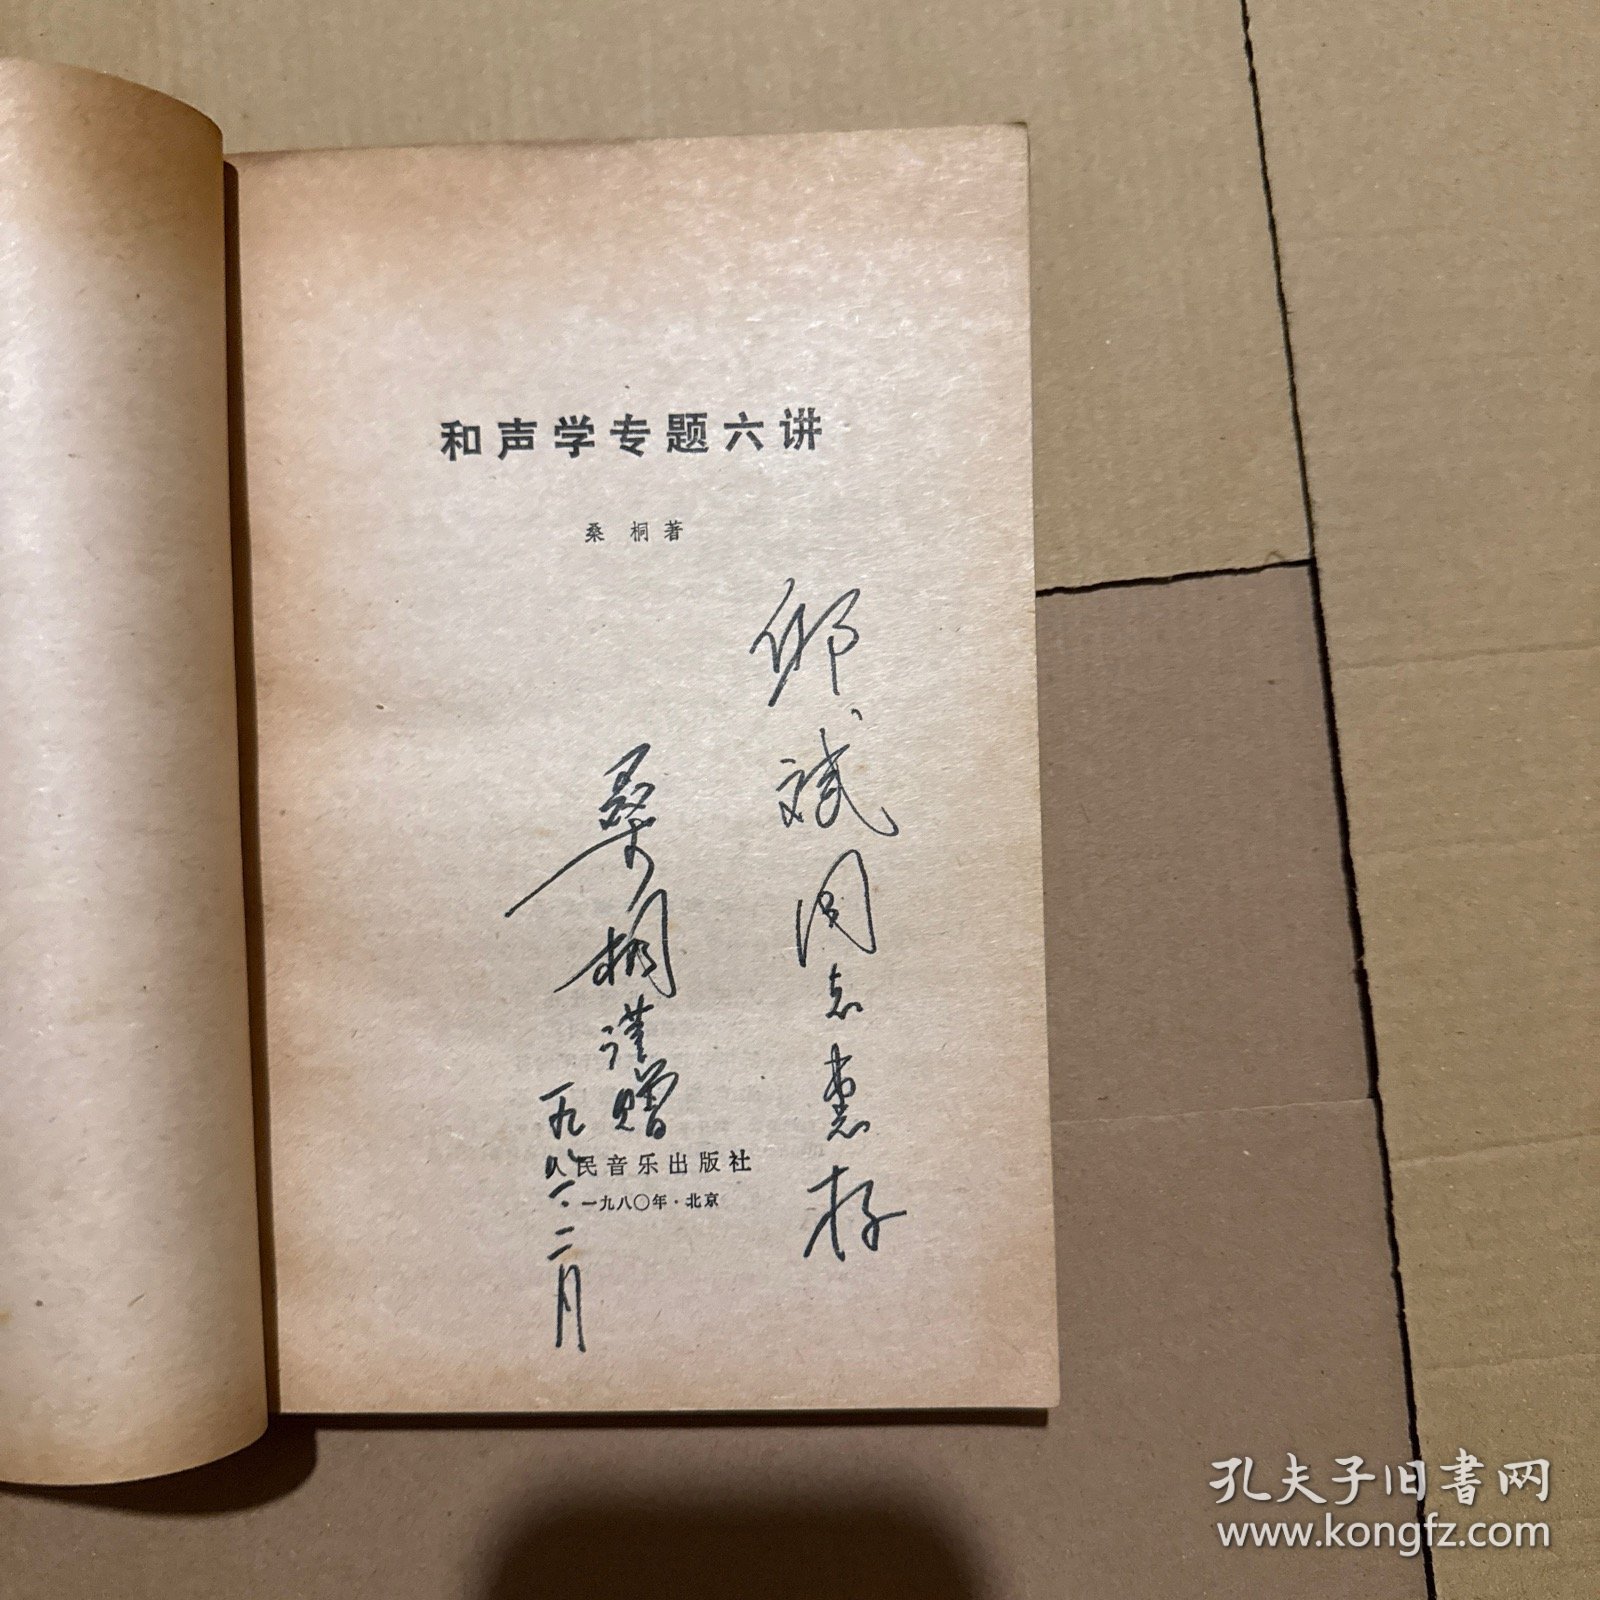 和声学专题六讲
桑桐著
斌同志惠存
桑桐谨赠
一九八一.二月
人民音乐出版社
一九八〇年·北京
孔夫子旧书网
www.kongfz.com